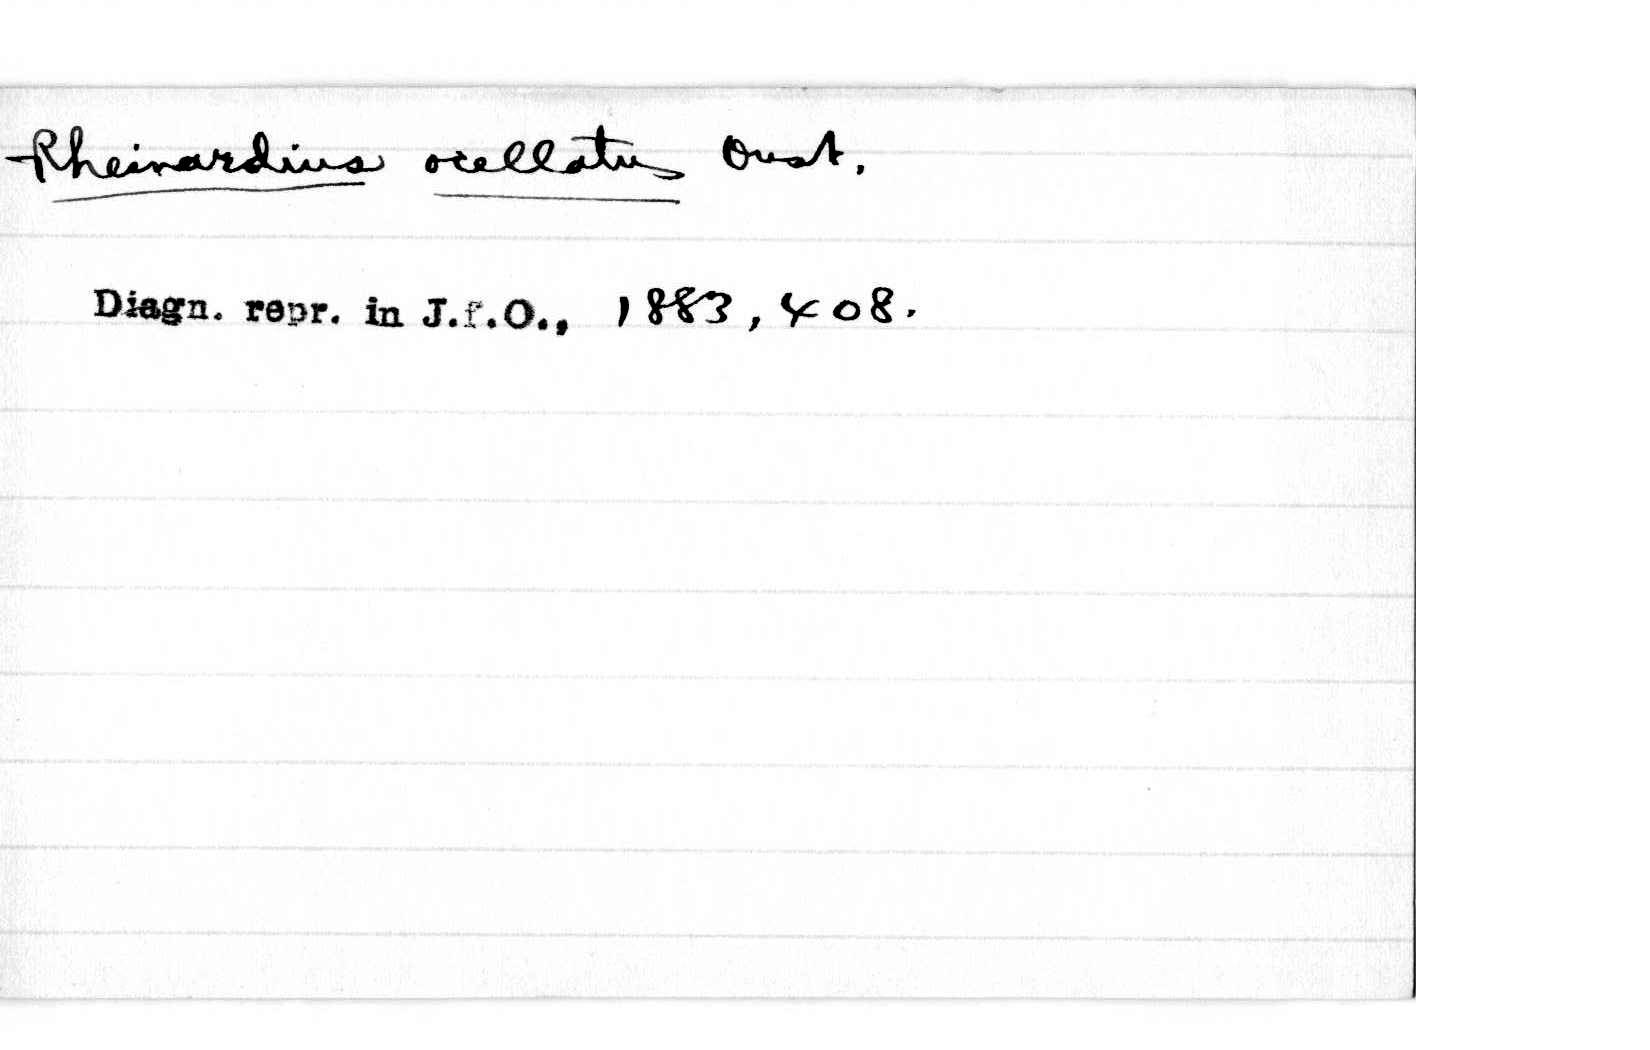 Rheinardius ocellatus Oust.
Diagn. repr. in J.f.O., 1883, 408.